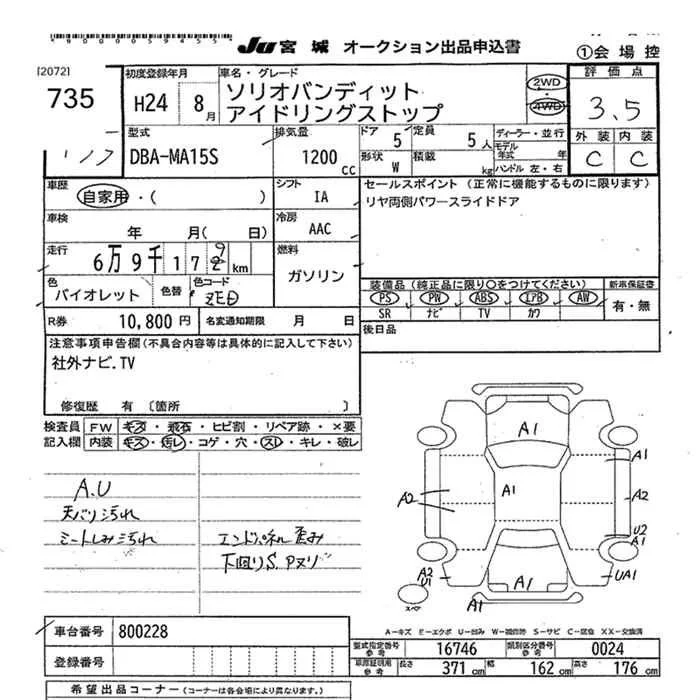 *9000059455*
JU 宮城 オークション出品申込書
①会場控
[2072]
735
初度登録年月
H24 8月
車名・グレード
ソリオバンディット
アイドリングストップ
2WD
4WD
評価点
3.5
外装 内装
C C
型式
DBA-MA15S
排気量
1200 CC
ドア 5
定員 5人
形状 W
積載 kg
ディーラー・並行
モデル年式 年
ハンドル 左・右
車歴
自家用・( )
シフト
IA
セールスポイント (正常に機能するものに限ります)
リヤ両側パワースライドドア
車検
年 月( 日)
冷房
AAC
走行
6万9千179km
燃料
ガソリン
色
バイオレット
色替
色コード
ZED
装備品(純正品に限り○をつけてください)
新車保証書
PS PW ABS エアB AW
SR ナビ TV カワ
有・無
R券 10,800円
名変通知期限 月 日
後日品
注意事項申告欄(不具合内容等は具体的に記入して下さい)
社外ナビ.TV
修復歴 有 〔箇所 〕
検査員 FW キズ・飛石・ヒビ割・リペア跡・×要
記入欄 内装 キズ・汚レ・コゲ・穴・スレ・キレ・破レ
A.U
天バリ汚れ
シートしみ汚れ
エンドパネル歪み
下回りS.Pヌリ
A1
A1
A1
A2
A2
U2
A1
A2
U1
UA1
A1
A1
スペア
A-キズ E-エクボ U-凹み W-補修跡 S-サビ C-腐食 XX-交換済
車台番号 800228
登録番号
型式指定番号 参考 16746
類別区分番号 参考 0024
車庫証明用 参考 長さ 371cm 幅 162cm 高さ 176cm
希望出品コーナー(コーナーは各会場により異なります。)